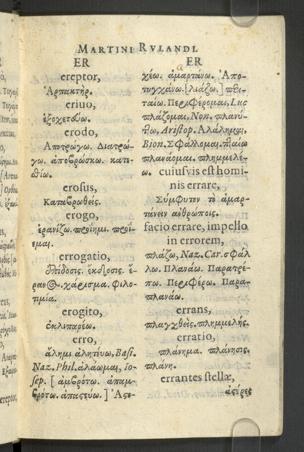 MARTINI RVLANDI
ER
ereptor,
Ἁρπακτήρ.
eriuo,
ἐξοχετεύω.
erodo,
Ἀποτρώγω. Διατρώ-
γω. ἀποβρώσκω. κατε-
σθίω.
erosus,
Καταβρωθείς.
erogo,
ἐρανίζω.
erogatio,
ἐπίδοσις. ἔκδοσις. ἔ-
ρανος. χάρισμα. φιλο-
τιμία.
erogito,
erro,
ἄλημι ἀλητεύω, Basi.
Naz. Phil. ἀλάομαι, Io-
sep.
ER
χέω. ἁμαρτάνω. Ἀπο-
τυγχάνω. [λιάζω.]
ταίω. Περιφέρομαι, Luc
πλάζομαι, Non.
Aristop. Ἀλάλημαι,
Bion. Σφάλλομαι.
πλανάομαι. πλημμελέ-
ω. cuiusuis est homi-
nis errare,
Σύμφυτον τὸ ἁμαρ-
τάνειν ἀνθρώποις.
facio errare, impello
in errorem,
πλάζω, Naz. Car. σφάλ
λω. Πλανάω. Παρατρέ-
πω. Περιφέρω. Παρα-
πλανάω.
errans,
πλαγχθεὶς. πλημμελής.
erratio,
πλάνημα. πλάνησις,
πλάνη.
errantes stellæ,
ἀστέρες